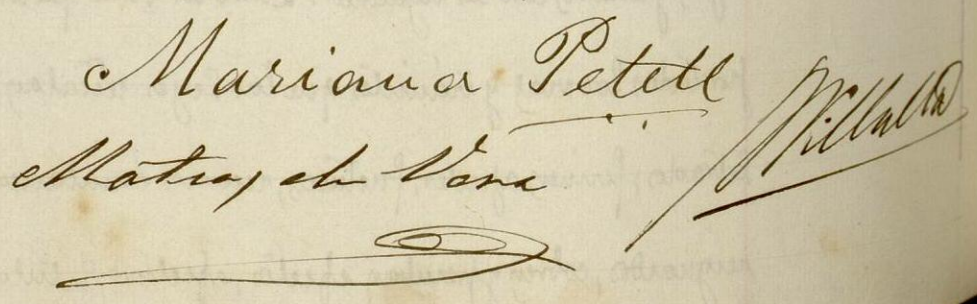 Mariana Petell
Matias de Vera
Villalta